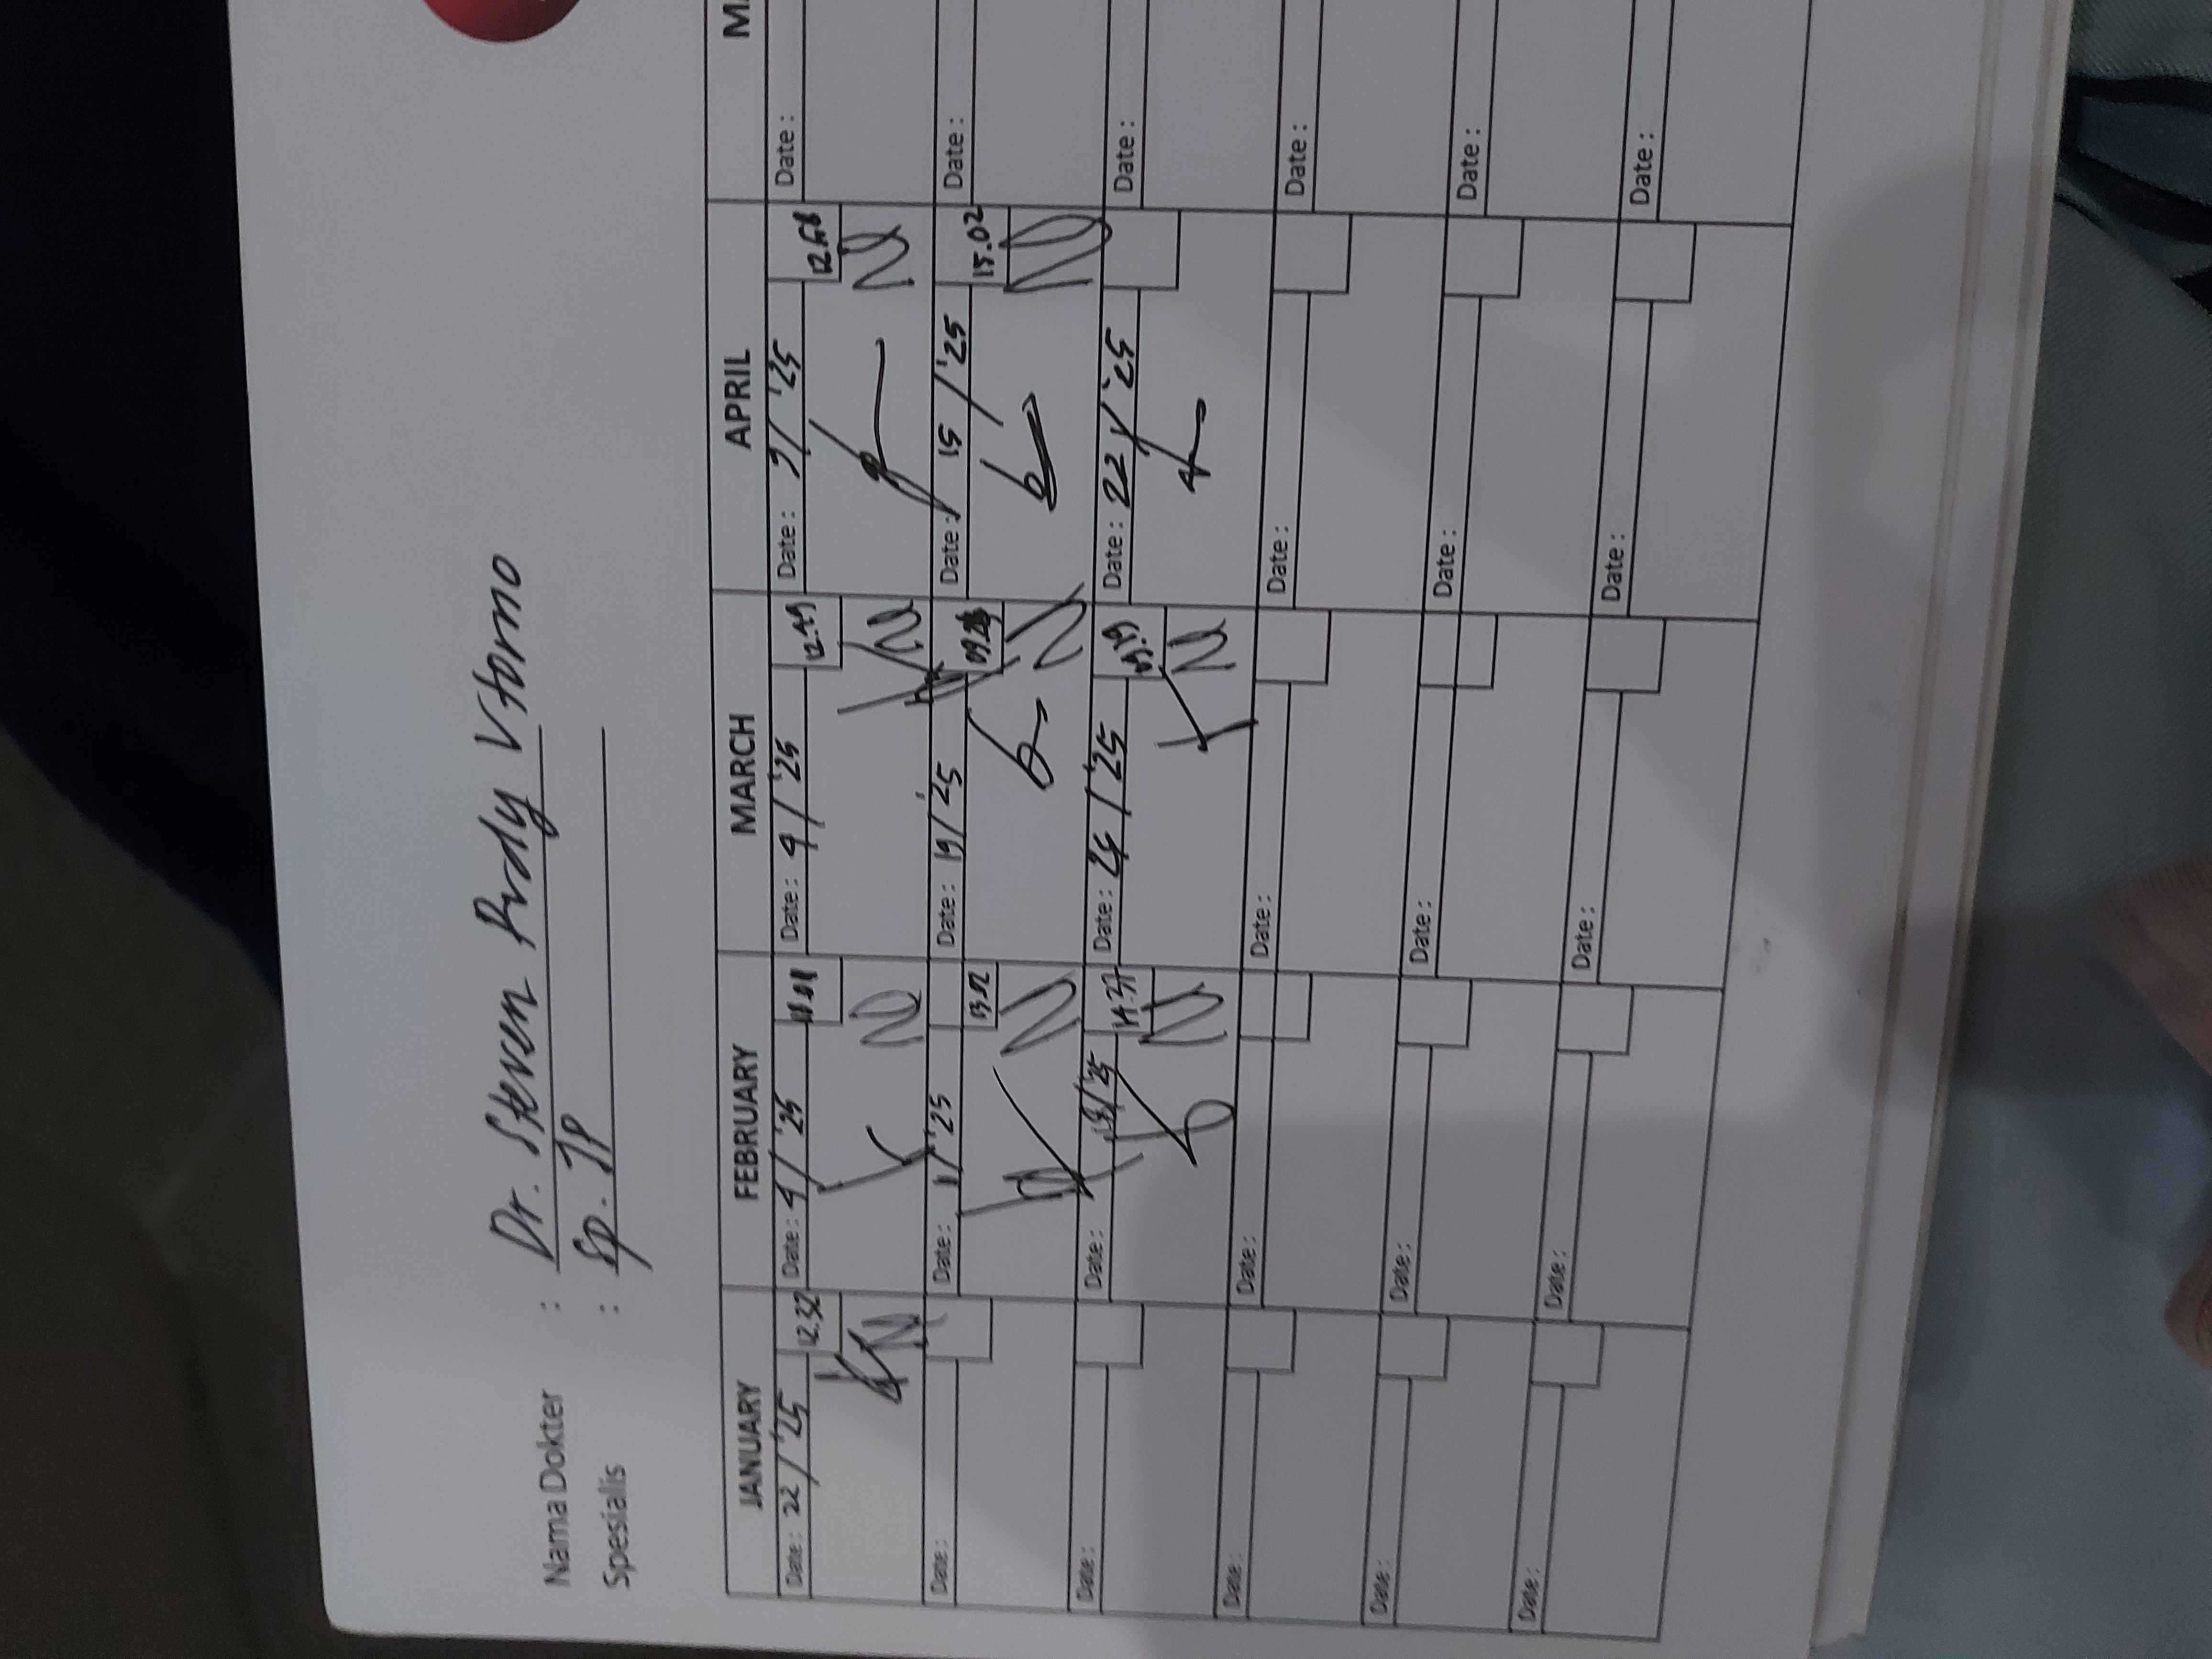 Nama Dokter : Dr. Steven Rudy Utomo
Spesialis : Sp. JP
JANUARY FEBRUARY MARCH APRIL
Date: 22 / '25 12.32 Date: 4 / '25 Date: 4 / '25 12.49 Date: 9 / '25 Date:
Date: Date: 11 / '25 13.02 Date: 19 / '25 Date: 15 / '25 15.02 Date:
Date: Date: 18 / '25 14.37 Date: / '25 Date: 22 / '25 Date:
Date: Date: Date: Date: Date:
Date: Date: Date: Date: Date:
Date: Date: Date: Date: Date: